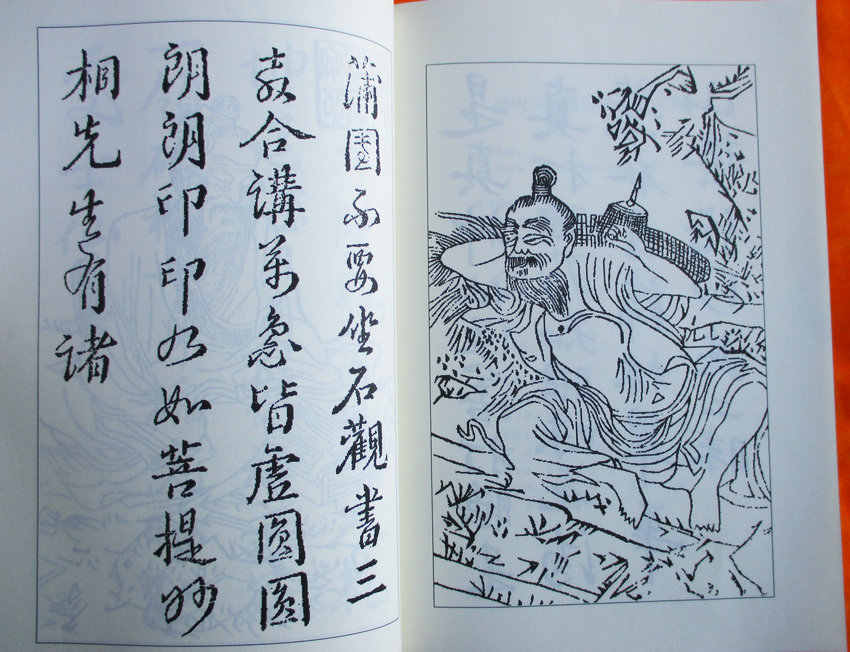 蒲團不要坐石觀書三
教合講萬皆虛圓圓
朗朗印印乃如菩提妙
相先生有諸